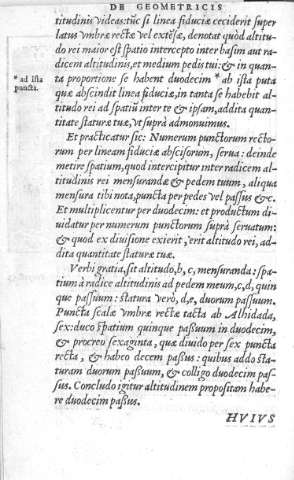 DE GEOMETRICIS
titudinis videas: tūc si linea fiduciæ ceciderit super
latus vmbræ rectæ vel extēsæ, denotat quòd altitu-
do rei maior est spatio intercepto inter basim aut ra-
dicem altitudinis, et medium pedis tui: & in quan-
ta proportione se habent duodecim * ab ista puta
* ad ista
puncta.
quæ abscindit linea fiduciæ, in tanta se habebit al-
titudo rei ad spatiū inter te & ipsam, addita quanti-
tate staturæ tuæ, vt suprà admonuimus.
Et practicatur sic: Numerum punctorum recto-
rum per lineam fiduciæ abscisorum, serua: deinde
metire spatium, quod intercipitur inter radicem al-
titudinis rei mensurandæ & pedem tuum, aliqua
mensura tibi nota, puncta per pedes vel passus &c.
Et multiplicentur per duodecim: et productum di-
uidatur per numerum punctorum suprà seruatum:
& quod ex diuisione exierit, erit altitudo rei, ad-
dita quantitate staturæ tuæ.
Verbi gratia, sit altitudo, b, c, mensuranda: spa-
tium à radice altitudinis ad pedem meum, c, d, quin
que passuum: statura verò, d, e, duorum passuum.
Puncta scalæ vmbræ rectæ tacta ab Alhidada,
sex: duco spatium quinque passuum in duodecim,
& procreo sexaginta, quæ diuido per sex puncta
recta, & habeo decem passus: quibus addo sta-
turam duorum passuum, & colligo duodecim pas-
sus. Concludo igitur altitudinem propositam habe-
re duodecim passus.
HVIVS